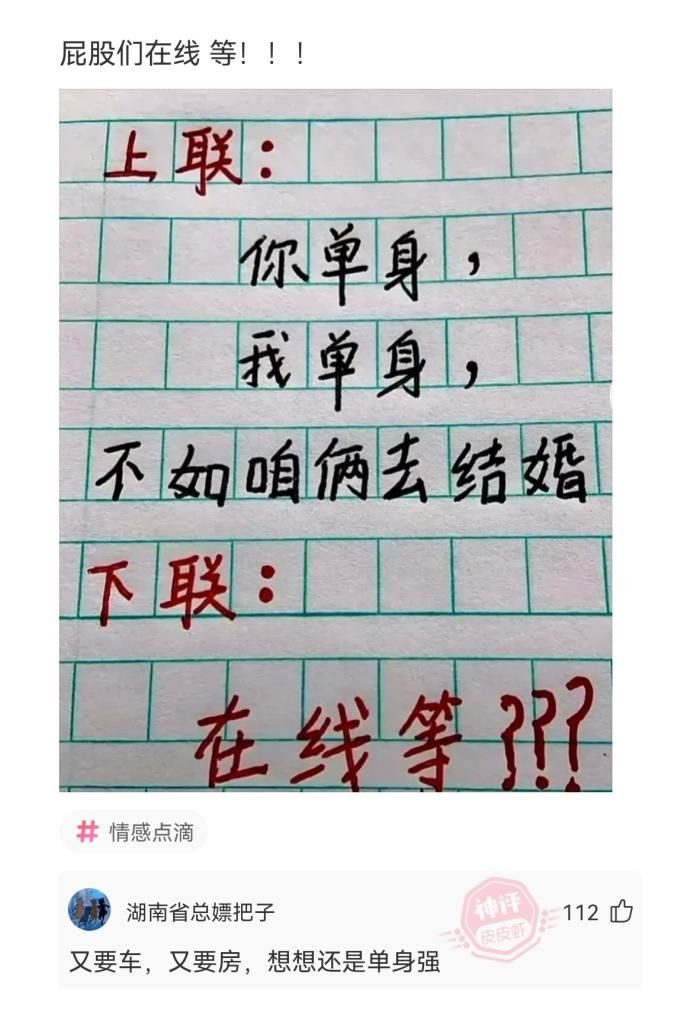 屁股们在线 等！！！
上联：
你单身，
我单身，
不如咱俩去结婚
下联：
在线等???
# 情感点滴
湖南省总嫖把子
神评
皮皮虾
112
又要车，又要房，想想还是单身强